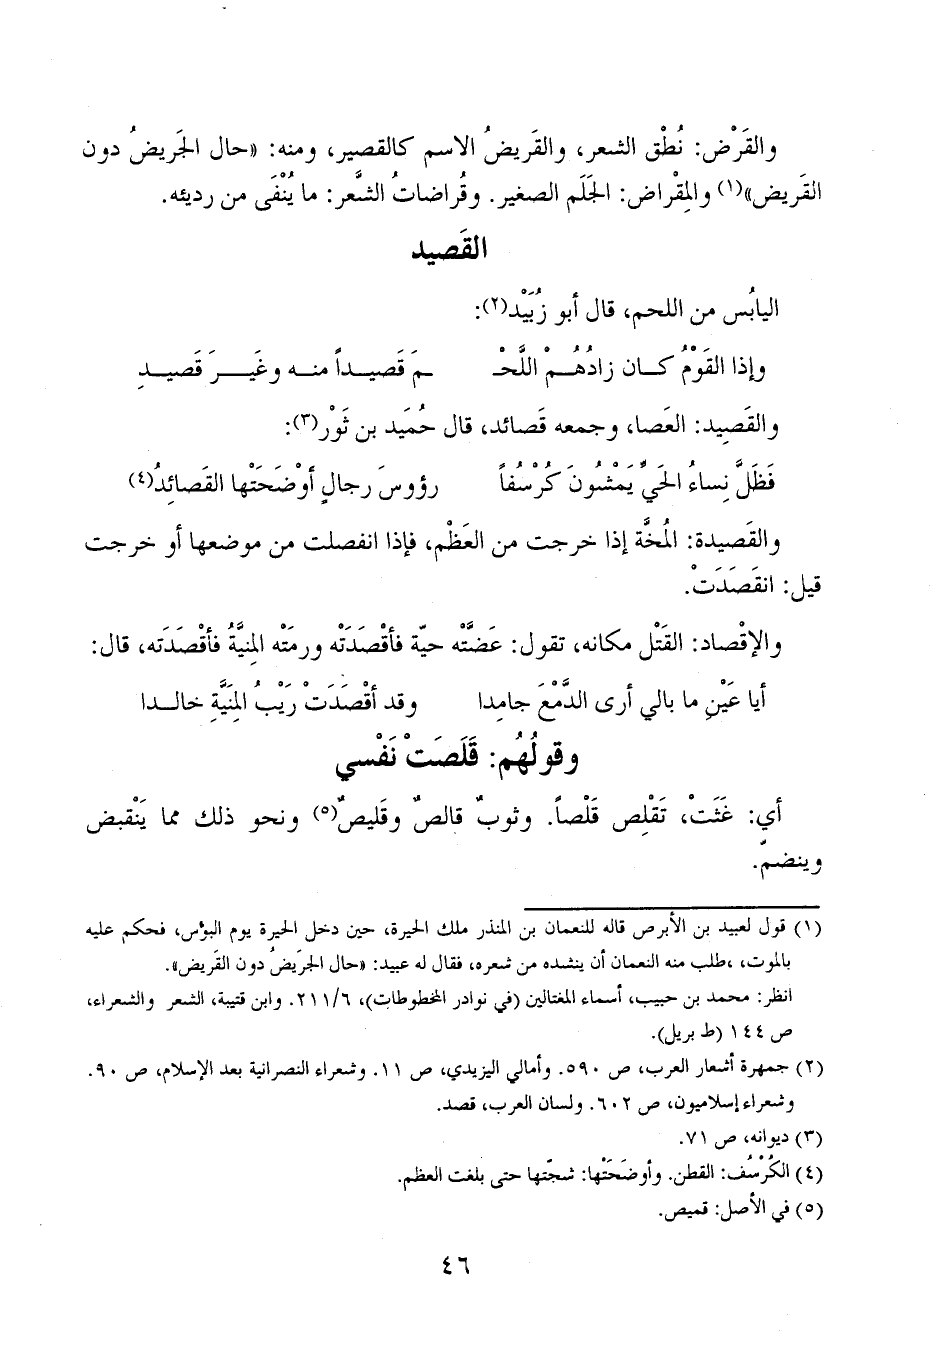 والقَرْض: نُطْق الشعر، والقَريضُ الاسم كالقصير، ومنه: «حال الجَريضُ دون
القَريض»(١) والمِقْراض: الجَلَم الصغير. وقُراضاتُ الشَّعر: ما يُنْفَى من رديئه.
القَصيد
اليابُس من اللحم، قال أبو زُبَيْد(٢):
وإذا القَوْمُ كــان زادُهُــمْ اللَّحْـ ـمَ قَصيــداً منــه وغَيــرَ قَصيــدِ
والقَصِيد: العَصا، وجمعه قَصائد، قال حُمَيد بن ثَوْر(٣):
فَظَلَّ نِساءُ الحَيِّ يَمْشُونَ كُرْسُفاً رؤوسَ رجالٍ أوْضَحَتْها القَصائِدُ(٤)
والقَصِيدة: المُخَّة إذا خرجت من العَظْم، فإذا انفصلت من موضعها أو خرجت
قيل: انقَصَدَتْ.
والإقْصاد: القَتْل مكانه، تقول: عَضَّتْه حيّة فأقْصَدَتْه ورمَتْه المِنيَّةُ فأقْصَدَته، قال:
أيا عَيْنِ ما بالي أرى الدَّمْعَ جامِدا وقد أقْصَدَتْ رَيْبُ المَنِيَّةِ خالــدا
وقولُهُم: قَلَصَتْ نَفْسي
أي: غَثَتْ، تَقْلِص قَلْصاً. وثوبٌ قالصٌ وقَليصٌ(٥) ونحو ذلك مما يَنْقبض
وينضمّ.
(١) قول لعبيد بن الأبرص قاله للنعمان بن المنذر ملك الحيرة، حين دخل الحيرة يوم البؤس، فحكم عليه
بالموت، ،طلب منه النعمان أن ينشده من شعره، فقال له عبيد: «حال الجرَيضُ دون القَريض».
انظر: محمد بن حبيب، أسماء المغتالين (في نوادر المخطوطات)، ٢١١/٦. وابن قتيبة، الشعر والشعراء،
ص ١٤٤ (ط بريل).
(٢) جمهرة أشعار العرب، ص ٥٩٠. وأمالي اليزيدي، ص ١١. وشعراء النصرانية بعد الإسلام، ص ٩٠.
وشعراء إسلاميون، ص ٦٠٢. ولسان العرب، قصد.
(٣) ديوانه، ص ٧١.
(٤) الكُرْسُف: القطن. وأوضَحَتْها: شجّتها حتى بلغت العظم.
(٥) في الأصل: قميص.
٤٦